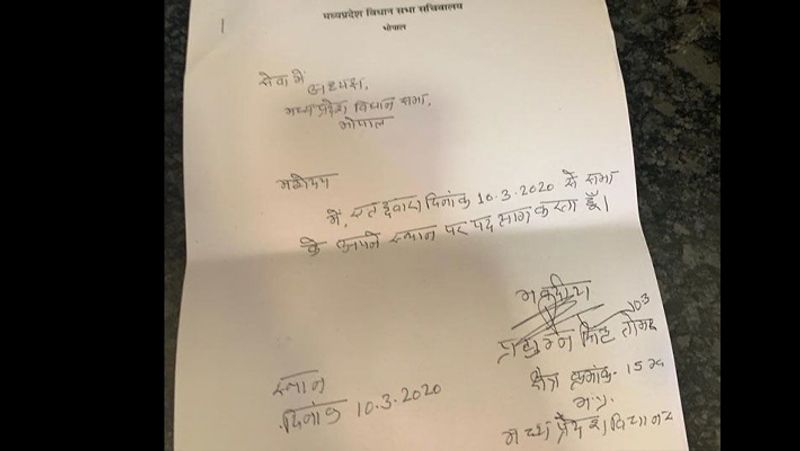 1
मध्यप्रदेश विधान सभा सचिवालय
भोपाल
सेवा में
अध्यक्ष,
मध्य प्रदेश विधान सभा,
भोपाल
महोदय
में, एतद्द्वारा दिनांक 10.3.2020 से सभा
के अपने स्थान पर पद त्याग करता हूँ।
भवदीय
10.3
प्रद्युम्न सिंह तोमर
क्षेत्र क्रमांक- 15
म.प्र.
मध्य प्रदेश विधानसभा
स्थान
दिनांक 10.3.2020